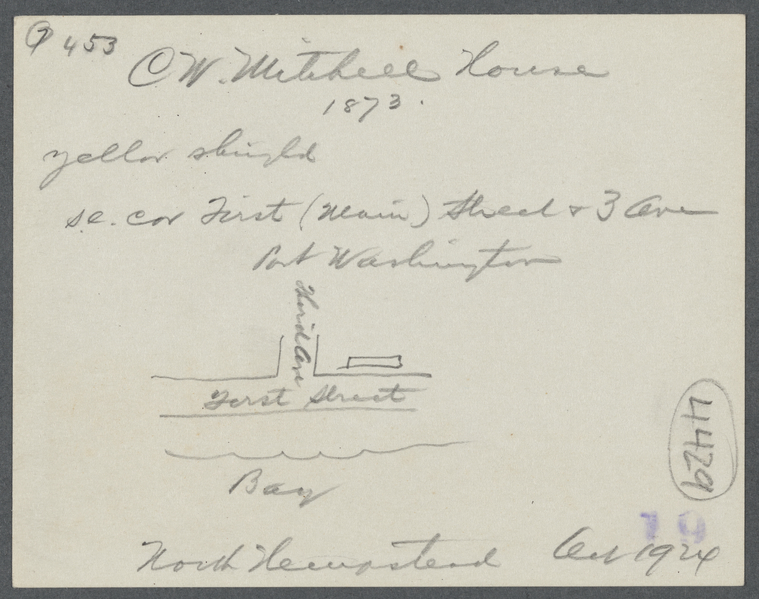 P 453
C W. Mitchell House
1873.
yellow shingle
s.e. cor First (Main) Street & 3 Ave
Port Washington
Third Ave
First Street
Bay
4429
10
North Hempstead Oct 1924